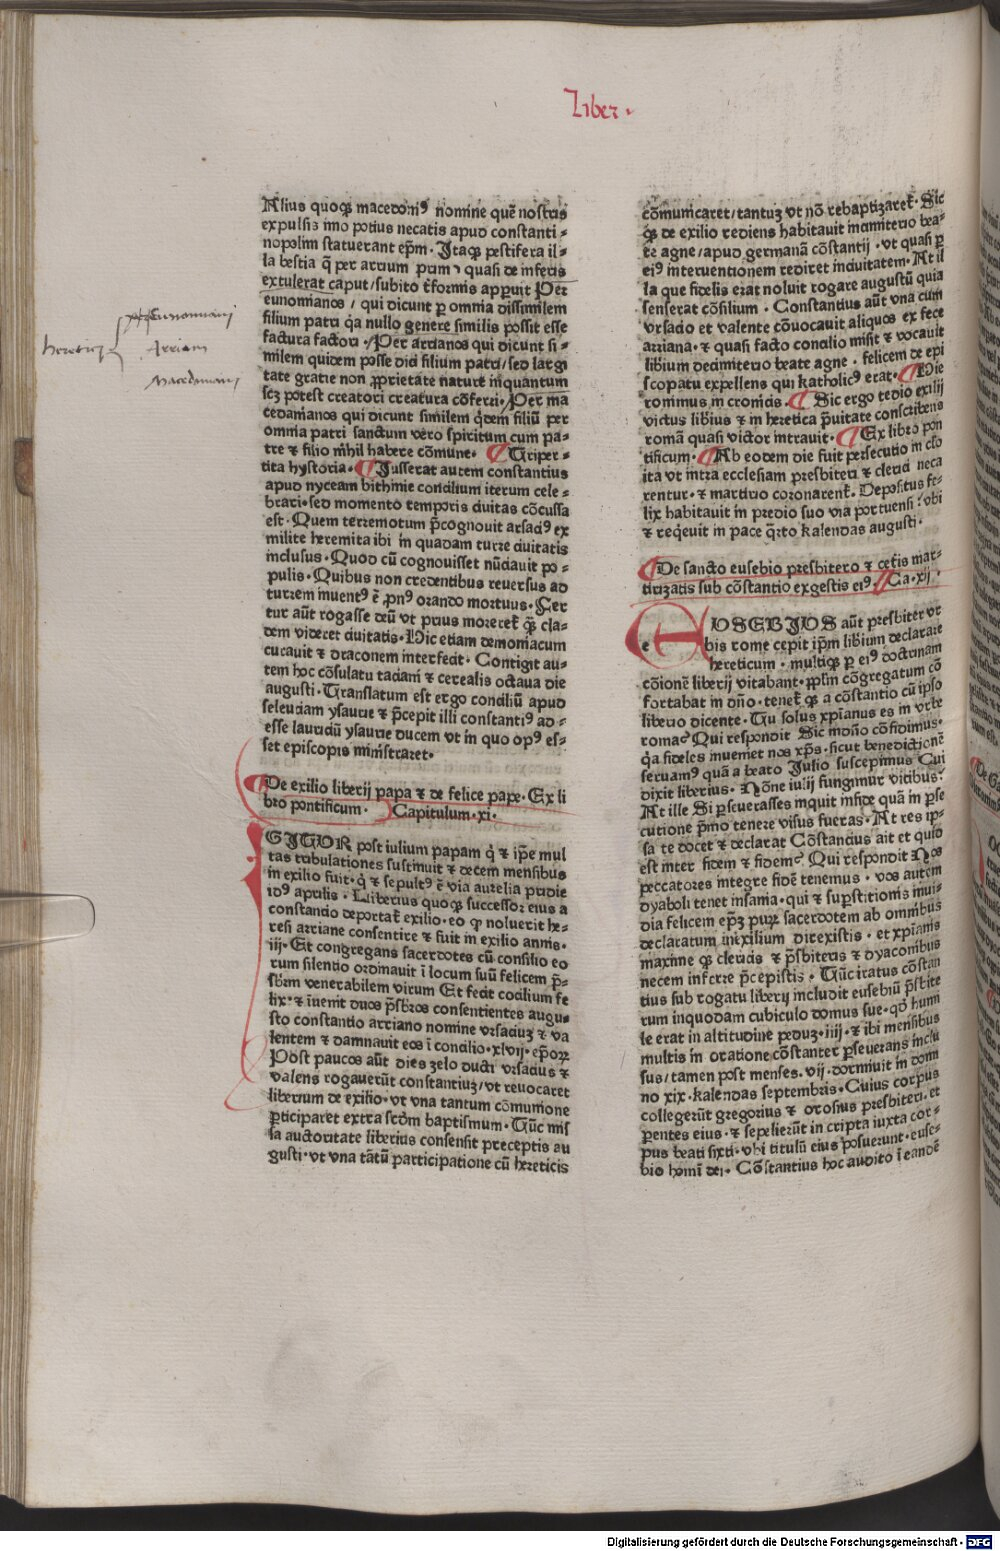 Liber.
Alius quoqꝫ macedoniꝰ nomine quē nostris
expulsis imo potius necatis apud constanti⸗
nopolim statuerant ep̄m. Itaqꝫ pestifera il⸗
la bestia q̄ per arrium primū quasi de inferis
extulerat caput/subito t̄formis apparuit Per
eunomianos/ qui dicunt ꝑ omnia dissimilem
filium patri q̇a nullo genere similis possit esse
factura factori. Per arrianos qui dicunt si⸗
milem quidem posse dici filium patri/sed largi
tate gratie non ꝓprietate nature inquantum
scꝫ potest creatori creatura cōferri. Per ma
cedonianos qui dicunt similem q̇dem filiū per
omnia patri sanctum vero spiritum cum pa⸗
tre ⁊ filio nihil habere cōmune. Triper⸗
tita hystoria. Jusserat autem constantius
apud nyceam bithinie concilium iterum cele⸗
brari.sed momento temporis ciuitas cōcussa
est. Quem terremotum p̄cognouit arsaciꝰ ex
milite heremita ibi in quadam turre ciuitatis
inclusus. Quod cū cognouisset nūciauit po⸗
pulis. Quibus non credentibus reuersus ad
turrem inuentꝰ ē ꝓnꝰ orando mortuus. Fer
tur aūt rogasse deū vt prius moreret̄ qꝫ cla⸗
dem videret ciuitatis. Hic etiam demoniacum
cucauit ⁊ draconem interfecit. Contigit au⸗
tem hoc cōsulatu taciani ⁊ cerealis octaua die
augusti. Translatum est ergo conciliū apud
seleuciam ysaurie ⁊ p̄cepit illi constantiꝰ ad⸗
esse lauriciū ysaurie ducem vt in quo opꝰ es⸗
set episcopis ministraret.
De exilio liberij papa ⁊ de felice pape. Ex li
bro pontificum. Capitulum.xi.
SIGUR post iulium papam q̇ ⁊ ip̄e mul
tas tribulationes sustinuit ⁊ decem mensibus
in exilio fuit.q̇ ⁊ sepultꝰ ē via aurelia pridie
idꝰ aprilis. Liberius quoqꝫ successor eius a
constancio deportat̄ exilio.eo qꝫ noluerit he⸗
resi arriane consentire ⁊ fuit in exilio annis.
iij. Et congregans sacerdotes cū consilio eo
rum silentio ordinauit ī locum suū felicem p̄⸗
sbrm venerabilem virum Et fecit cōcilium fe
lix.⁊ īuenit duos p̄sbros consentientes augu⸗
sto constantio arriano nomine vrsaciuꝫ ⁊ va
lentem ⁊ damnauit eos ī concilio.xlvij.ep̄oꝝ
Post paucos aūt dies zelo ducti vrsacius ⁊
valens rogauerūt constantiuꝫ/vt reuocaret
liberium de exilio.vt vna tantum cōmunione
ꝑticiparet extra scdm baptismum. Tūc mis
sa auctoritate liberius consensit preceptis au
gusti.vt vna tātū participatione cū hereticis
cōmunicaret/tantuꝫ vt nō rebaptizaret̄. Sic
qꝫ de exilio rediens habitauit incimiterio bea⸗
te agne/apud germanā cōstantij.vt quasi ꝑ
eiꝰ interuentionem rediret inciuitatem. At il
la que fidelis erat noluit rogare augustū quia
senserat cōsilium. Constancius aūt vna cum
vrsacio et valente cōuocauit aliquos ex fece
arriana.⁊ quasi facto concilio misit ⁊ vocauit
libīum decimiterio beate agne. felicem de epi
scopatu expellens qui katholicꝰ erat. Hie
ronimus in cronicis. Sic ergo tedio exilij
victus libīus ⁊ in heretica ꝓuitate conscribens
romā quasi victor intrauit. Ex libro pon
tificum. Ab eodem die fuit persecutio in clo
ita vt intra ecclesiam presbiteri ⁊ clerici neca
rentur.⁊ martirio coronarent̄. Depositus fe⸗
lix habitauit in predio suo via portuensi.vbi
⁊ req̇euit in pace q̇rto kalendas augusti.
De sancto eusebio presbitero ⁊ cet̄is mar⸗
tirizatis sub cōstantio exgestis eiꝰ. Ca.xij.
e
EUSEBIUS aūt presbiter vr
bis rome cepit ip̄m libīum declarare
hereticum. multiqꝫ ꝑ eiꝰ doctrinam
cōionē liberij vitabant. pplm cōgregatum cō
fortabat in dño.tenet̄ qꝫ a cōstantio cū ipso
liberio dicente. Tu solus xp̄ianus es in vrbe
roma? Qui respondit Sic indño cōfidimus.
q̇a fideles inuemet nos xp̄s.sicut benedictionē
seruamꝰ quā a beato Julio suscepimus Cui
dixit liberius. Nōne iulij fungimur vicibus?
At ille Si ꝑseuerasses inquit infide quā in ꝑse
cutione p̄mo tenere visus fueras. At res ip⸗
sa te docet ⁊ declarat Cōstancius ait et quid
est inter fidem ⁊ fidem? Qui respondit Nos
peccatores integre fidē tenemus. vos autem
dyaboli tenet insania.qui ⁊ suꝑstitionis inui⸗
dia felicem ep̄ꝫ puꝝ sacerdotem ab omnibus
declaratum inexilium direxistis. et xp̄ianis
maxime qꝫ clericis ⁊ p̄sbiteris ⁊ dyaconibus
necem inferre p̄cepistis. Tūc iratus cōstan
tius sub rogatu liberij includit eusebiū p̄sbite
rum inquodam cubiculo domus sue.qď humi
le erat in altitudine peduꝫ.iiij.⁊ ibi mensibus
multis in oratione cōstanter ꝑseuerans inclu
sus/tamen post menses.vij.dormiuit in domi
no xix.kalendas septembris. Cuius corpus
collegerūt gregorius ⁊ orosius presbiteri.et
ꝑentes eius.⁊ sepelierūt in cripta iuxta cor⸗
pus beati sixti.vbi titulū eius posuerunt.euse⸗
bio homi dei. Cōstantius hoc audito ī eandē
heretici
Eunomiani
Arriani
Macedoniani
Digitalisierung gefördert durch die Deutsche Forschungsgemeinschaft - DFG